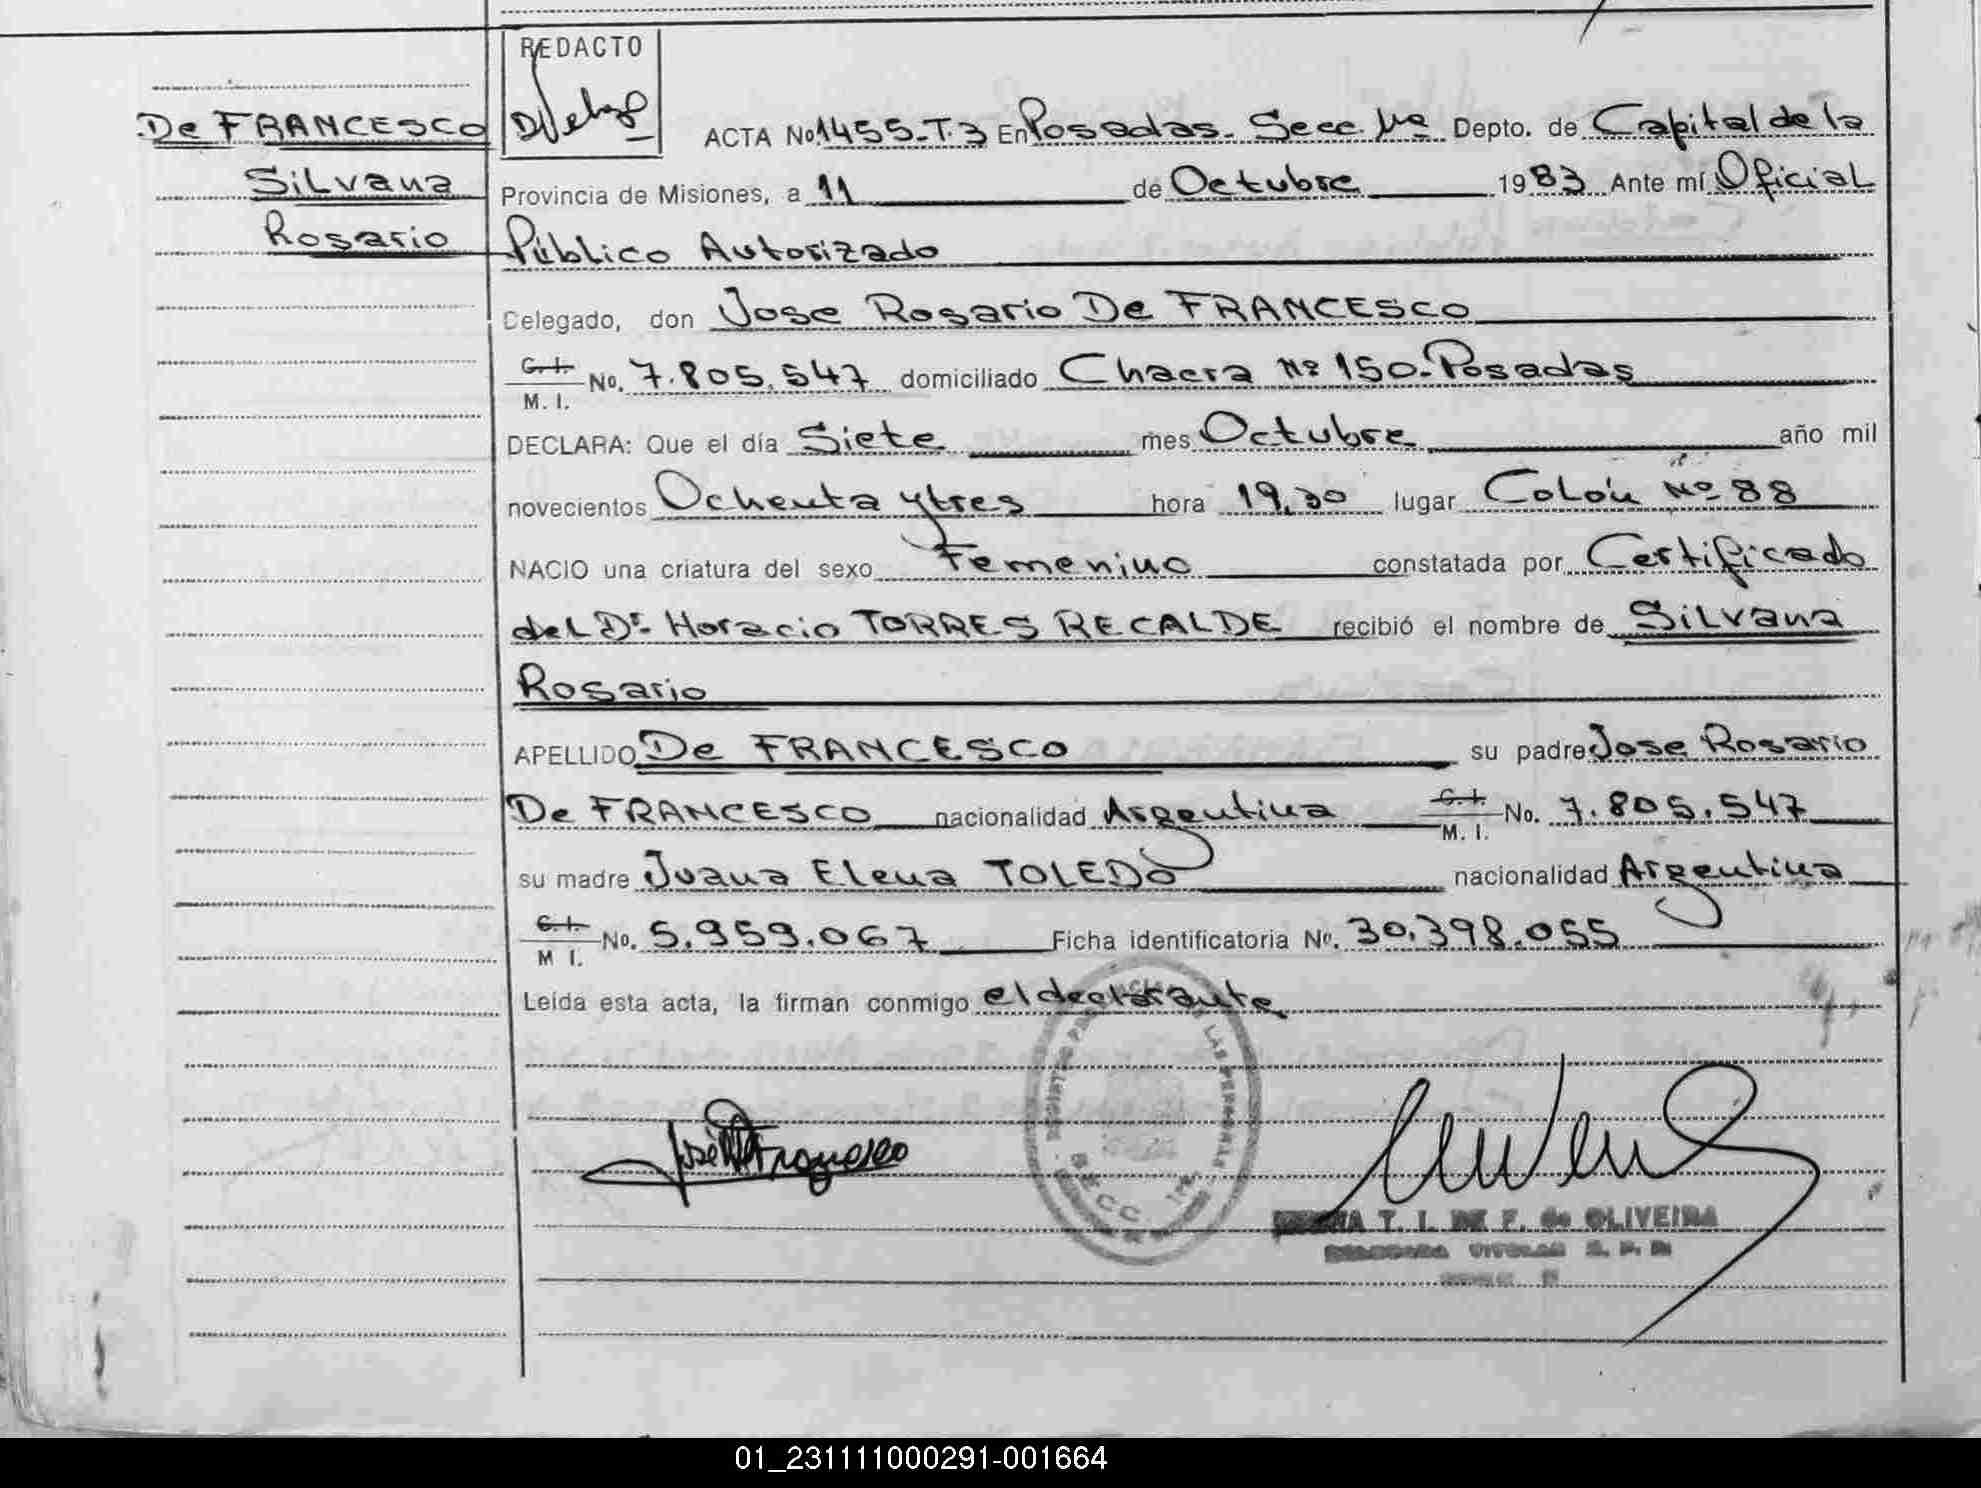 REDACTO
De FRANCESCO
Silvana
Rosario
ACTA No. 1455-T.3 En Posadas. Secc. 1ra Depto. de Capital de la
Provincia de Misiones, a 11 de Octubre 1983 Ante mí Oficial
Público Autorizado
Delegado, don Jose Rosario De FRANCESCO
C. I.
M. I. No. 7.805.547 domiciliado Chacra Nº 150-Posadas
DECLARA: Que el día Siete mes Octubre año mil
novecientos Ochenta y tres hora 19,30 lugar Colón Nº 88
NACIO una criatura del sexo Femenino constatada por Certificado
del Dr. Horacio TORRES RECALDE recibió el nombre de Silvana
Rosario
APELLIDO De FRANCESCO su padre Jose Rosario
De FRANCESCO nacionalidad Argentina C. I. M. I. No. 7.805.547
su madre Juana Elena TOLEDO nacionalidad Argentina
C. I.
M I. No. 5.959.067 Ficha identificatoria No. 30.398.055
Leída esta acta, la firman conmigo el declarante
LAS PERSONAS
SECC.
T. I. DE F. de OLIVEIRA
TITULAR
01_231111000291-001664